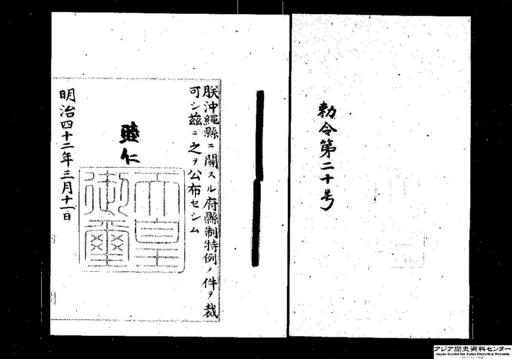 勅令第二十号
朕沖縄縣ニ關スル府縣制特例ノ件ヲ裁
可シ茲ニ之ヲ公布セシム
睦仁
天皇
御璽
明治四十二年三月十一日
アジア歴史資料センター
Japan Center for Asian Historical Records